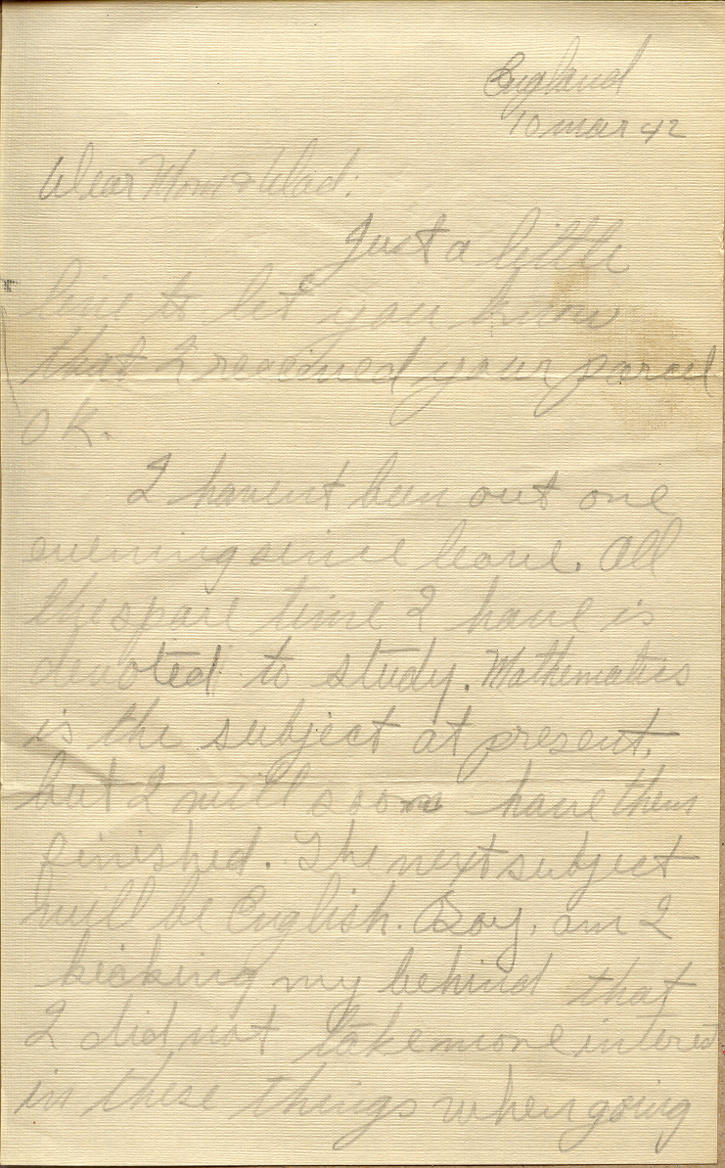 England
10 Mar 42
Dear Mom & Dad:
Just a little
line to let you know
that I received your parcel
OK.
I havent been out one
evening since leave. All
the spare time I have is
devoted to study. Mathematics
is the subject at present,
but I will soon have them
finished. The next subject
will be English. Boy, am I
kicking my behind that
I did not take more interest
in these things when going